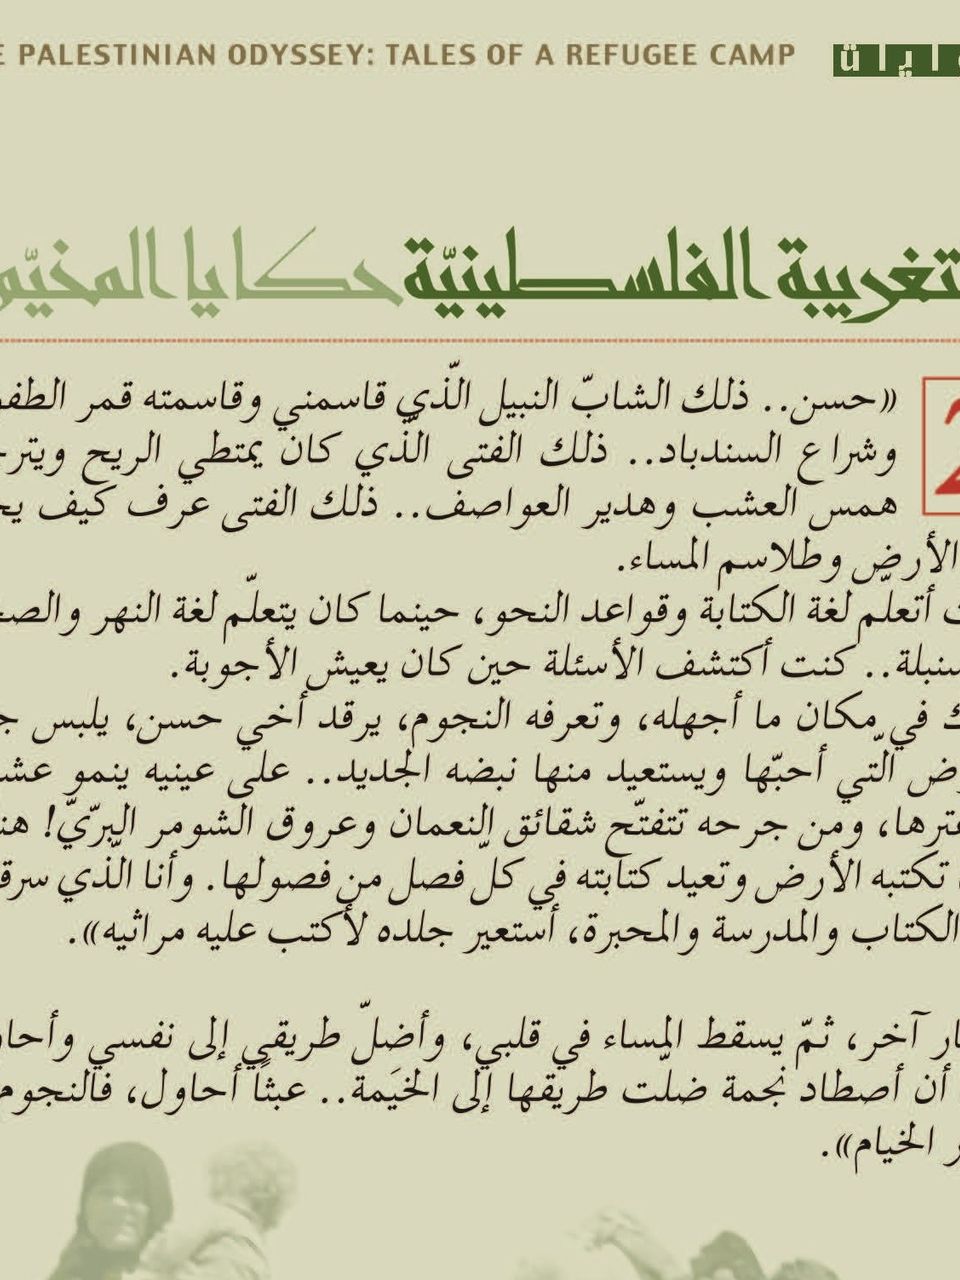 PALESTINIAN ODYSSEY: TALES OF A REFUGEE CAMP
الفلسطينيّة حكايا
2
«حسن.. ذلك الشابّ النبيل الّذي قاسمني وقاسمته قمر
وشراع السندباد.. ذلك الفتى الّذي كان يمتطي الريح
همس العشب وهدير العواصف.. ذلك الفتى عرف كيف
الأرض وطلاسم المساء.
أتعلّم لغة الكتابة وقواعد النحو، حينما كان يتعلّم لغة النهر
كنت أكتشف الأسئلة حين كان يعيش الأجوبة.
في مكان ما أجهله، وتعرفه النجوم، يرقد أخي حسن، يلبس
الّتي أحبّها ويستعيد منها نبضه الجديد.. على عينيه ينمو
ومن جرحه تتفتّح شقائق النعمان وعروق الشومر البرّيّ!
تكتبه الأرض وتعيد كتابته في كلّ فصل من فصولها. وأنا الّذي
الكتاب والمدرسة والمحبرة، أستعير جلده لأكتب عليه مراثيه».
آخر، ثمّ يسقط المساء في قلبي، وأضلّ طريقي إلى نفسي
أن أصطاد نجمة ضلّت طريقها إلى الخيَمة.. عبثًا أحاول، فالنجوم
الخيام».